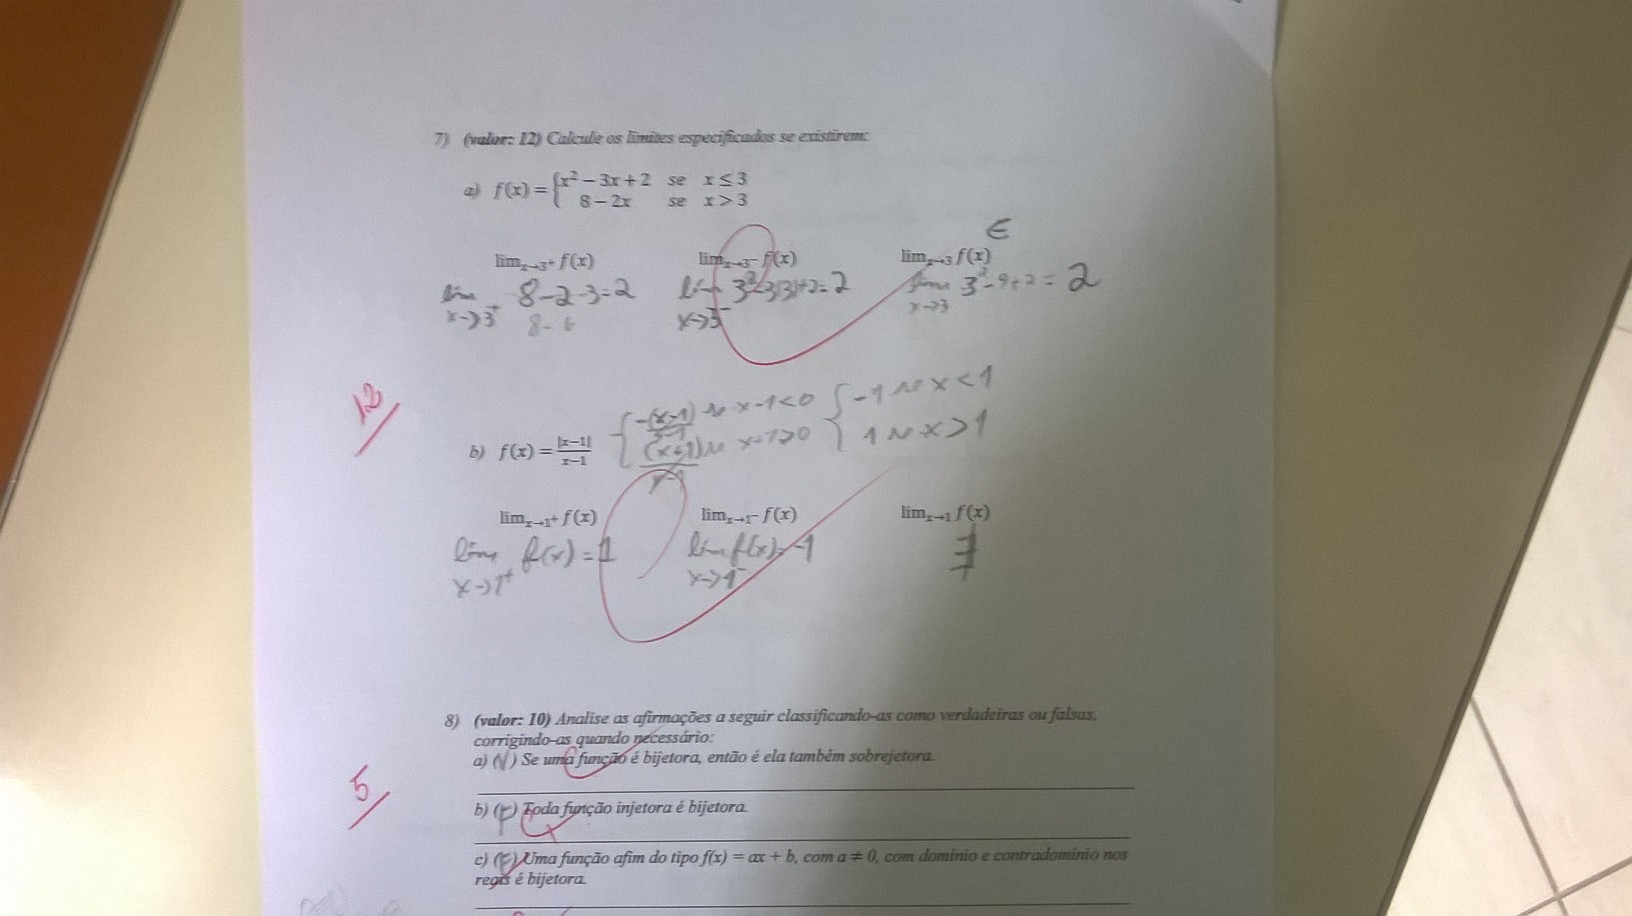 7) (valor: 12) Calcule os limites especificados se existirem:
a) f(x) = { x² − 3x + 2 se x ≤ 3
8 − 2x se x > 3
∈
lim x→3⁺ f(x) lim x→3⁻ f(x) lim x→3 f(x)
lim x→3⁺ 8-2·3=2 lim x→3⁻ 3²-3(3)+2=2 lim x→3 3²-9+2=2
8-6
12
{ -(x-1) x-1<0 { -1 x<1
x-1
b) f(x) = |x−1| / x−1 (x-1) x-1>0 1 x>1
x-1
lim x→1⁺ f(x) lim x→1⁻ f(x) lim x→1 f(x)
lim x→1⁺ f(x)=1 lim x→1⁻ f(x)=-1 ∄
8) (valor: 10) Analise as afirmações a seguir classificando-as como verdadeiras ou falsas,
corrigindo-as quando necessário:
5
a) (V) Se uma função é bijetora, então é ela também sobrejetora.
b) (F) Toda função injetora é bijetora.
c) (F) Uma função afim do tipo f(x) = ax + b, com a ≠ 0, com domínio e contradomínio nos
reais é bijetora.